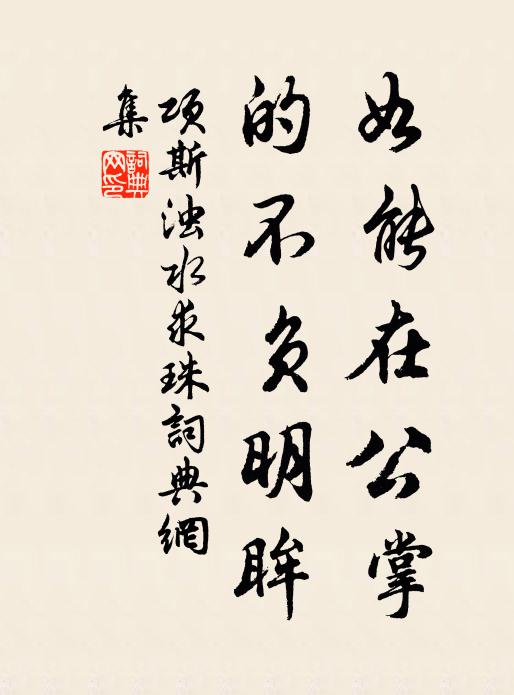 如能在公掌
的不負明眸
項斯浊水求珠詞典網
集
詞典网印